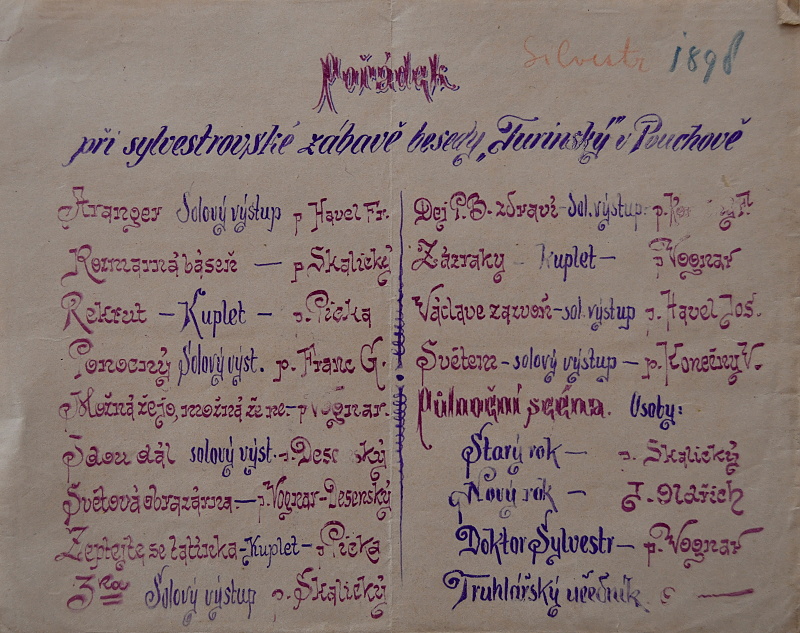 Silvestr 1898
Pořádek
při sylvestrovské zábavě besedy „Turinský" v Pouchově
Aranger Solový výstup p Havel Fr.
Rozmarná báseň — p Skalický
Rekrut — Kuplet — p. Picka
Ponocný Solový výst. p. Franc G.
Možná že jo, možná že ne — p Vognar.
Jdou dál solový výst. -
Světová obrazárna — p. Vognar-Desenský
Zeptejte se tatínka - Kuplet - p Picka
3 Solový výstup p. Skalický
Dej P. B. zdraví - Sol. výstup. p.
Zázraky - Kuplet — p Vognar
Václave zazvoň - sol. výstup p. Havel Jos.
Světem - solový výstup — p. Konečný V.
Půlnoční scéna. Osoby:
Starý rok — p. Skalický
Nový rok — J. Oldřich
Doktor Sylvestr — p. Vognar
Truhlářský učedník —